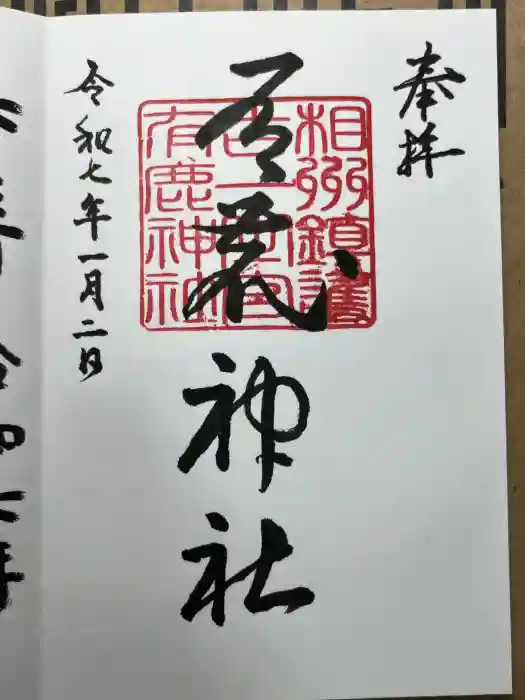 奉拝
有鹿神社
相州鎮護
有鹿神社
令和七年一月二日